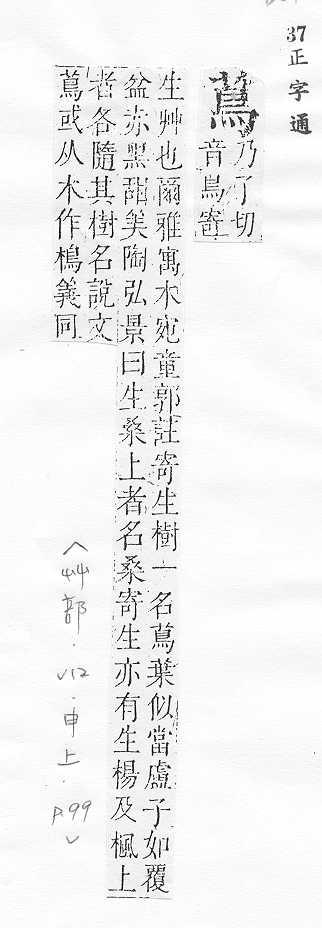 37正字通
蔦乃了切
音鳥寄
生艸也爾雅寓木宛童郭註寄生樹一名蔦葉似當盧子如覆
盆赤黑甜美陶弘景曰生桑上者名桑寄生亦有生楊及楓上
者各隨其樹名說文
蔦或从木作樢義同
〈艸部．V12．申上．P.99〉